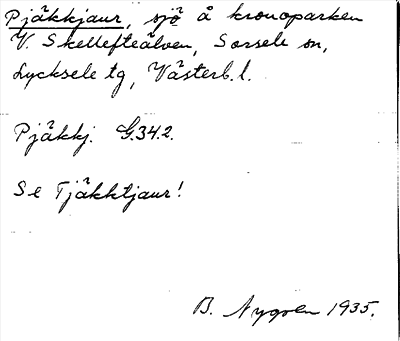 Pjäkkjaur, sjö å kronoparken
V. Skellefteälven, Sorsele sn,
Lycksele tg, Västerb. l.
Pjäkkj. G.34.2.
Se Tjäkktjaur!
B. Nygren 1935.